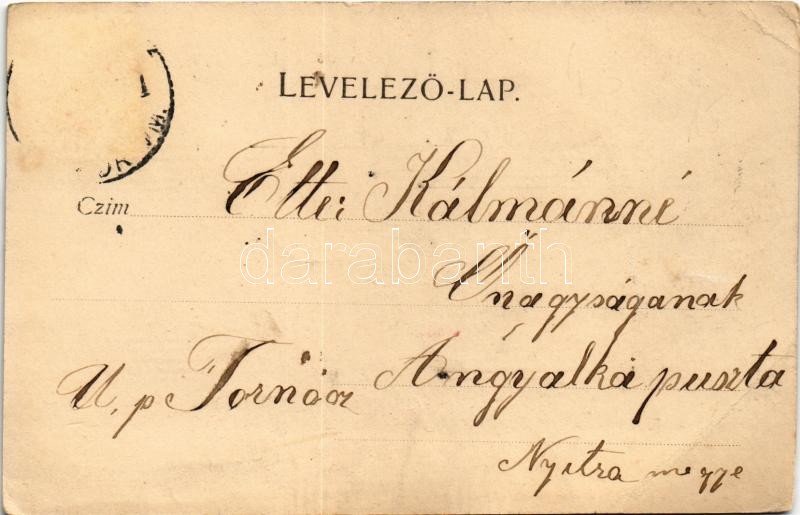 LEVELEZŐ-LAP.
Czim Ettei Kálmánné
Őnagyságanak
U. p Tornócz Angyalka puszta
Nyitra megye
darabanth